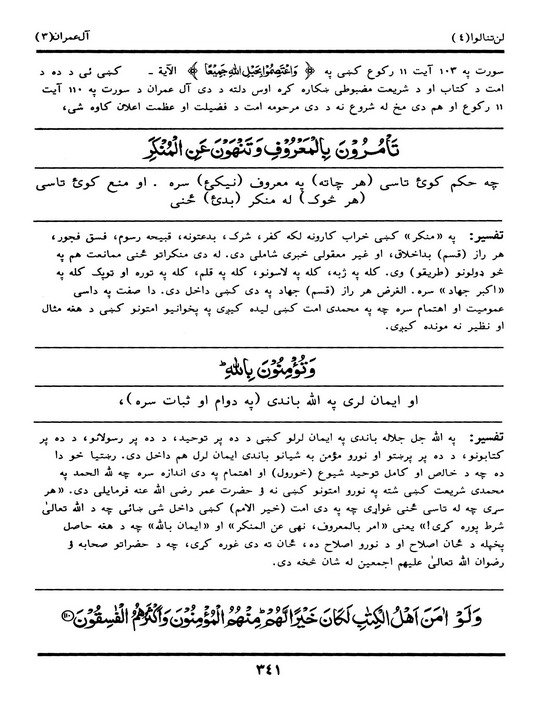 لن تنالوا (٤)
آل عمران (٣)
سورت په ١٠٣ آیت ١١ رکوع کښی په ﴿ وَاعْتَصِمُوا بِحَبْلِ اللّٰهِ جَمِيْعًا ﴾ الآیة ـ کښی ئی د ده د
امت د کتاب او د شریعت مضبوطی ښکاره کړه اوس دلته د دی آل عمران د سورت په ١١٠ آیت
١١ رکوع او هم دی مخ له شروع نه د دی مرحومه امت د فضیلت او عظمت اعلان کاوه شی،
تَأْمُرُوْنَ بِالْمَعْرُوْفِ وَتَنْهَوْنَ عَنِ الْمُنْكَرِ
چه حکم کوئ تاسی (هر چاته) په معروف (نیکئ) سره . او منع کوئ تاسی
(هر څوک) له منکر (بدئ) څنی
تفسیر: په «منکر» کښی خراب کارونه لکه کفر، شرک، بدعتونه، قبیحه رسوم، فسق فجور،
هر راز (قسم) بداخلاق، او غیر معقولی خبری شاملی دی. له دی منکراتو څنی ممانعت هم په
څو ډولونو (طریقو) وی. کله په ژبه، کله په لاسونو، کله په قلم، کله په توره او ټوپک کله په
«اکبر جهاد» سره. الغرض هر راز (قسم) جهاد په دی کښی داخل دی. دا صفت په داسی
عمومیت او اهتمام سره چه په محمدی امت کښی لیده کیږی په پخوانیو امتونو کښی د هغه مثال
او نظیر نه مونده کیږی.
وَتُؤْمِنُوْنَ بِاللّٰهِ ؕ
او ایمان لری په الله باندی (په دوام او ثبات سره)،
تفسیر: په الله جل جلاله باندی په ایمان لرلو کښی د ده پر توحید، د ده پر رسولانو، د ده پر
کتابونو، د ده پر پرښتو او نورو مؤمن به شیانو باندی ایمان لرل هم داخل دی. رښتیا خو دا
ده چه د خالص او کامل توحید شیوع (خورول) او اهتمام په دی اندازه سره چه لله الحمد په
محمدی شریعت کښی شته په نورو امتونو کښی نه ؤ حضرت عمر رضی الله عنه فرمایلی دی. «هر
سړی چه له تاسی څنی غواړی چه په دی امت (خیر الامم) کښی داخل شی ښائی چه د الله تعالیٰ
شرط پوره کړی!» یعنی «امر بالمعروف، نهی عن المنکر» او «ایمان بالله» چه د هغه حاصل
پخپله د ځان اصلاح او د نورو اصلاح ده، ځان ته دی غوره کړی، چه د حضراتو صحابه ؤ
رضوان الله تعالیٰ علیهم اجمعین له شان څخه دی.
وَلَوْ اٰمَنَ اَهْلُ الْكِتٰبِ لَكَانَ خَيْرًا لَّهُمْ ؕ مِنْهُمُ الْمُؤْمِنُوْنَ وَاَكْثَرُهُمُ الْفٰسِقُوْنَ ﴿١١٠﴾
٣٤١